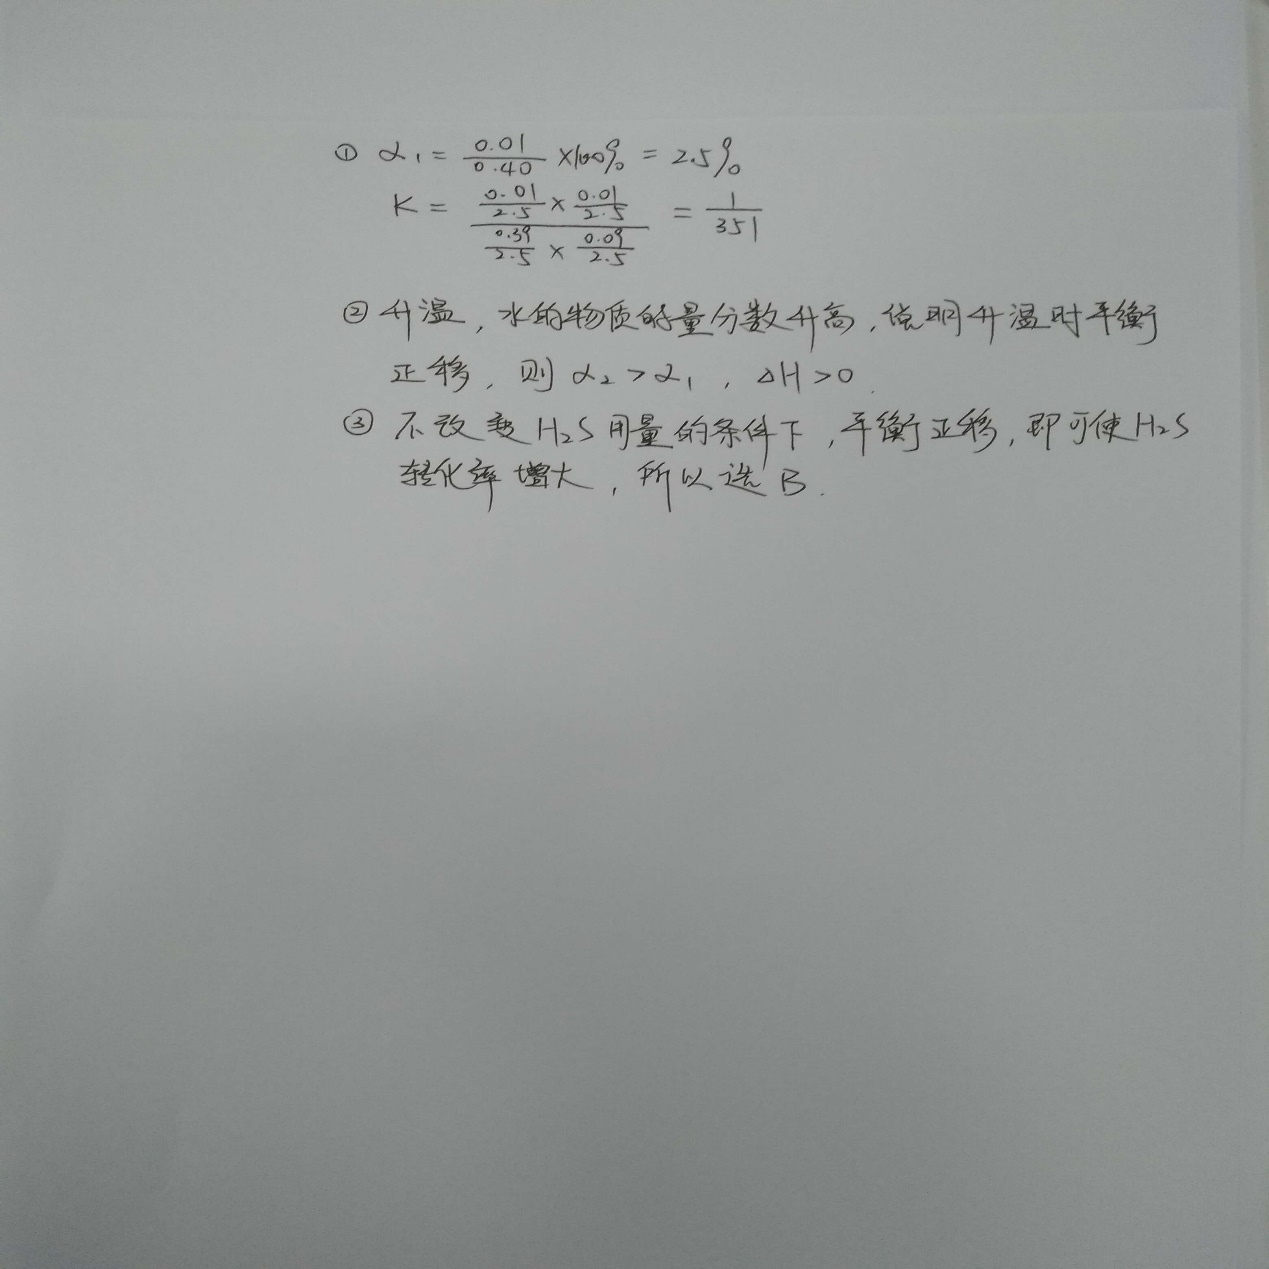 ① α₁ = 0.01/0.40 ×100% = 2.5%
K = (0.01/2.5 × 0.01/2.5)/(0.39/2.5 × 0.09/2.5) = 1/351
② 升温，水的物质的量分数升高，说明升温时平衡
正移，则 α₂ > α₁ ，△H > 0.
③ 不改变H₂S用量的条件下，平衡正移，即可使H₂S
转化率增大，所以选B.